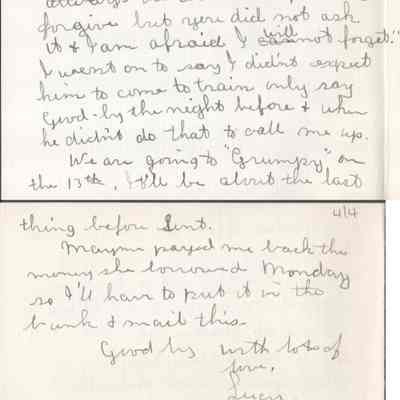 forgive but you did not ask
it & I am afraid I will not forget."
I went on to say I didn't expect
him to come to train only say
Good-by the night before & when
he didn't do that to call me up.
We are going to "Grumpy" on
the 13th, I'll be about the last
4/4
thing before Lent.
Mayme payed me back the
money she borrowed Monday
so I'll have to put it in the
bank & mail this.
Good by with lots of
love,
Lucy